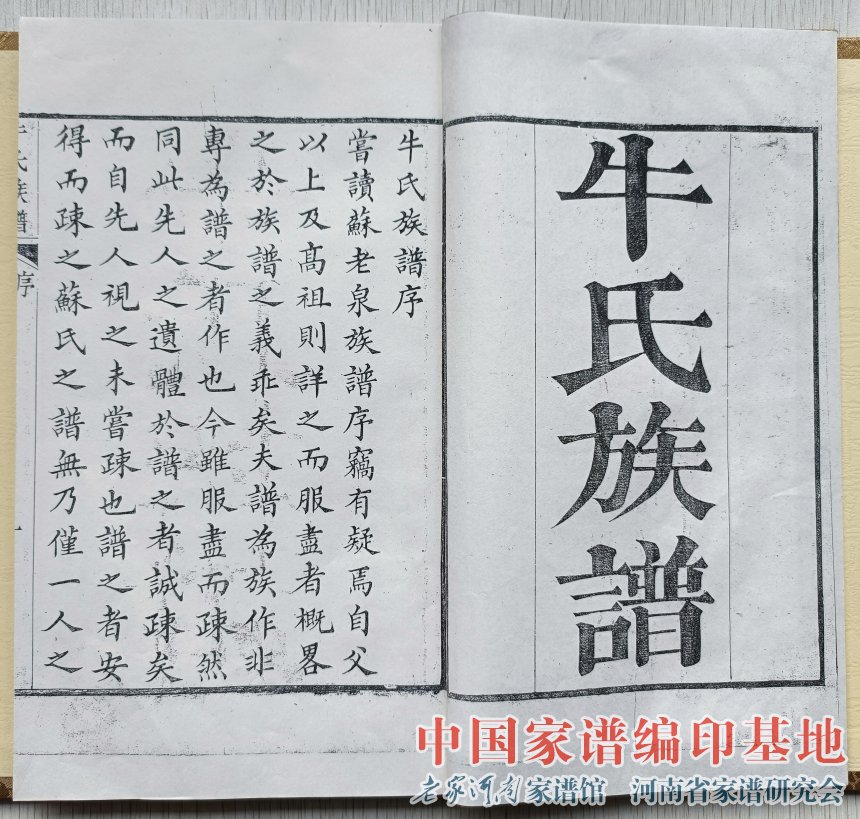 牛氏族譜
牛氏族譜序
嘗讀蘇老泉族譜序竊有疑焉自父
以上及高祖則詳之而服盡者概畧
之於族譜之義乖矣夫譜為族作非
專為譜之者作也今雖服盡而疎然
同此先人之遺體於譜之者誠疎矣
而自先人視之未嘗疎也譜之者安
得而疎之蘇氏之譜無乃僅一人之
牛氏族譜
序
一
中国家谱编印基地
老家河南家谱馆 河南省家谱研究会